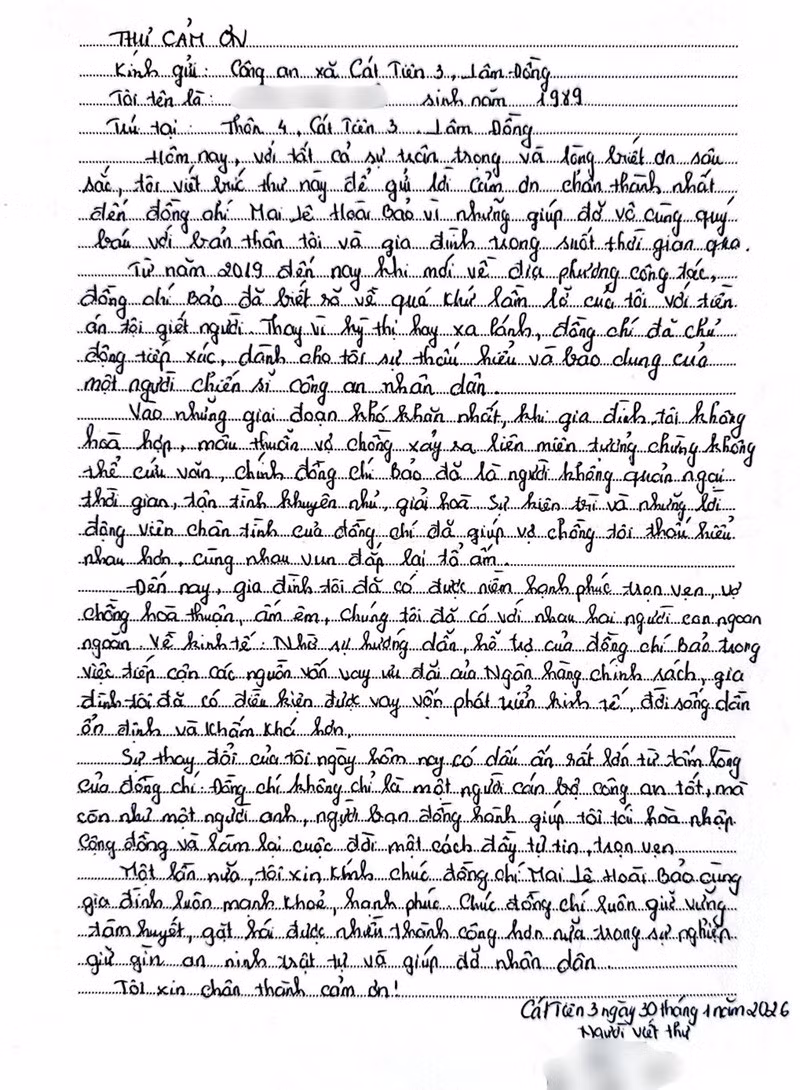 THƯ CẢM ƠN
Kính gửi: Công an xã Cát Tiên 3, Lâm Đồng
Tôi tên là: sinh năm 1989
Trú tại: Thôn 4, Cát Tiên 3. Lâm Đồng
Hôm nay, với tất cả sự trân trọng và lòng biết ơn sâu
sắc, tôi viết bức thư này để gửi lời cảm ơn chân thành nhất
đến đồng chí Mai Lê Hoài Bảo vì những giúp đỡ vô cùng quý
báu với bản thân tôi và gia đình trong suốt thời gian qua.
Từ năm 2019 đến nay khi mới về địa phương công tác,
đồng chí Bảo đã biết rõ về quá khứ lầm lỡ của tôi với tiền
án tội giết người. Thay vì kỳ thị hay xa lánh, đồng chí đã chủ
động tiếp xúc, dành cho tôi sự thấu hiểu và bao dung của
một người chiến sĩ công an nhân dân.
Vào những giai đoạn khó khăn nhất, khi gia đình tôi không
hoà hợp, mâu thuẫn vợ chồng xảy ra liên miên tưởng chừng không
thể cứu vãn, chính đồng chí Bảo đã là người không quản ngại
thời gian, tận tình khuyên nhủ, giải hoà. Sự kiên trì và những lời
động viên chân tình của đồng chí đã giúp vợ chồng tôi thấu hiểu
nhau hơn, cùng nhau vun đắp lại tổ ấm.
Đến nay, gia đình tôi đã có được niềm hạnh phúc trọn vẹn, vợ
chồng hoà thuận, ấm êm, chúng tôi đã có với nhau hai người con ngoan
ngoãn. Về kinh tế: Nhờ sự hướng dẫn, hỗ trợ của đồng chí Bảo trong
việc tiếp cận các nguồn vốn vay ưu đãi của Ngân hàng chính sách, gia
đình tôi đã có điều kiện được vay vốn phát triển kinh tế, đời sống dần
ổn định và khấm khá hơn.
Sự thay đổi của tôi ngày hôm nay có dấu ấn rất lớn từ tấm lòng
của đồng chí. Đồng chí không chỉ là một người cán bộ công an tốt, mà
còn như một người anh, người bạn đồng hành giúp tôi tái hoà nhập
cộng đồng và làm lại cuộc đời một cách đầy tự tin, trọn vẹn.
Một lần nữa, tôi xin kính chúc đồng chí Mai Lê Hoài Bảo cùng
gia đình luôn mạnh khoẻ, hạnh phúc. Chúc đồng chí luôn giữ vững
tâm huyết, gặt hái được nhiều thành công hơn nữa trong sự nghiệp
giữ gìn an ninh trật tự và giúp đỡ nhân dân.
Tôi xin chân thành cảm ơn!
Cát Tiên 3 ngày 30 tháng 1 năm 2026
Người viết thư